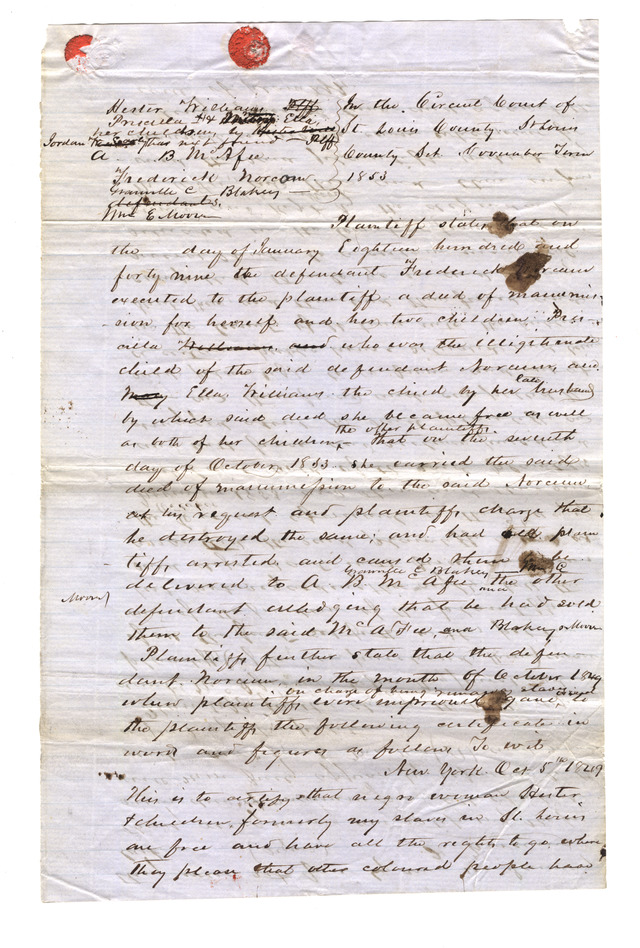 Hester Williams Plff
Priscilla & Ella,
her children by
Jordan that not found Plff
A B McAfee
Frederick Norcom
Granville C Blakey
defendants,
Wm E Moore
In the Circuit Court of
St Louis County St Louis
County Sct November Term
1853
Plaintiff states that on
the day of January Eighteen hundred and
forty nine the defendant Frederick Norcum
executed to the plaintiff a deed of manumis-
sion for herself and her two children Pris-
cilla Williams and who was the illegitimate
child of the said defendant Norcum, and
Mary Ella Williams the child by her late husband
by which said died she became free as well
as both of her children, the other plaintiffs. that on the seventh
day of October 1853 she carried the said
deed of manumission to the said Norcum
at his request and plaintiffs charge that
he destroyed the same; and had plain
tiffs arrested and caused them to be
delivered to A B McAfee Granville C Blakey and the other
Moore
defendant alledging that he had sold
them to the said McAfee, and Blakey & Moore
Plaintiffs further state that the defen-
dant Norcum, in the month of October 1849
when plaintiffs were on charge of being runaway slaves gave to
the plaintiffs the following certificate in
words and figures as follows To wit
New York Oct 5th 1849
This is to certify that negro woman Hester
& children, formerly my slaves in St. Louis
are free and have all the rights to go where
they please that other coloured people have